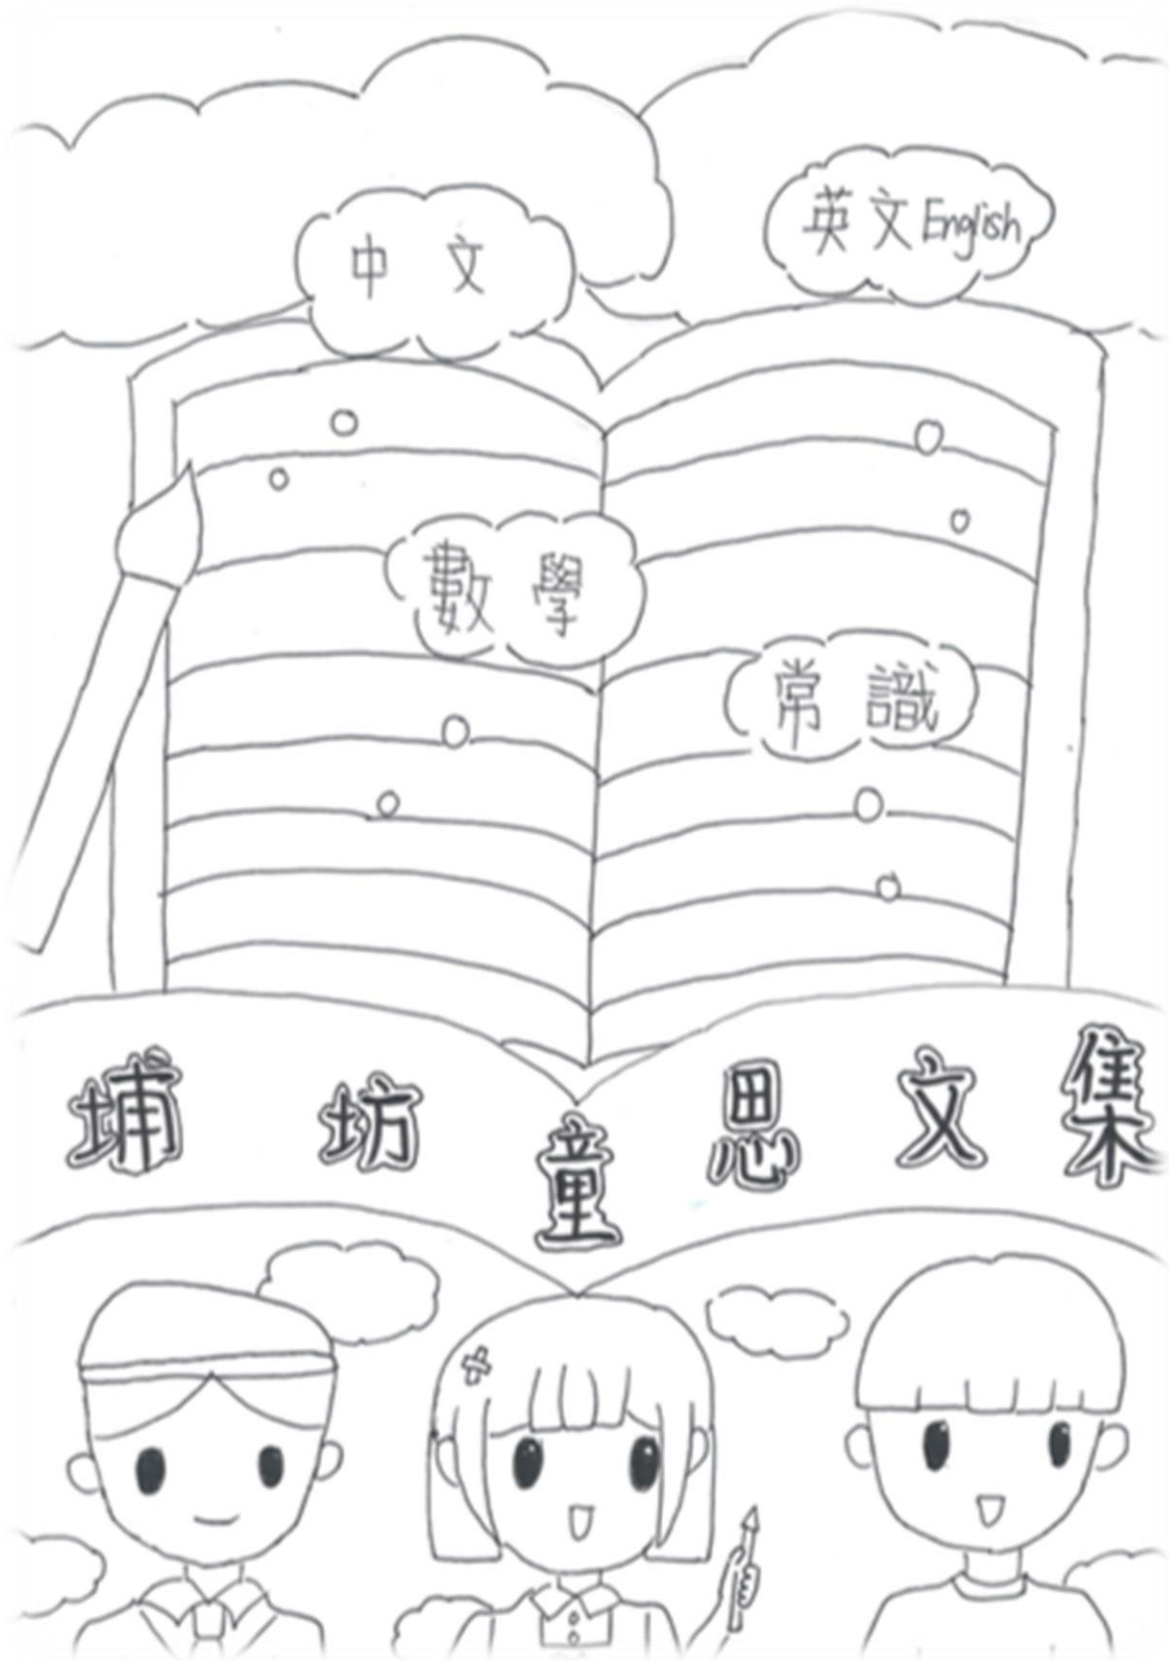 中文
英文English
數學
常識
埔坊童思文集